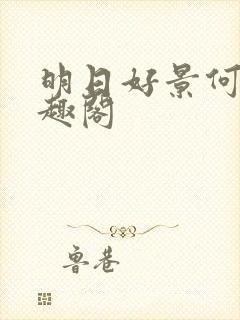 明日好景何
趣阁
鲁巷